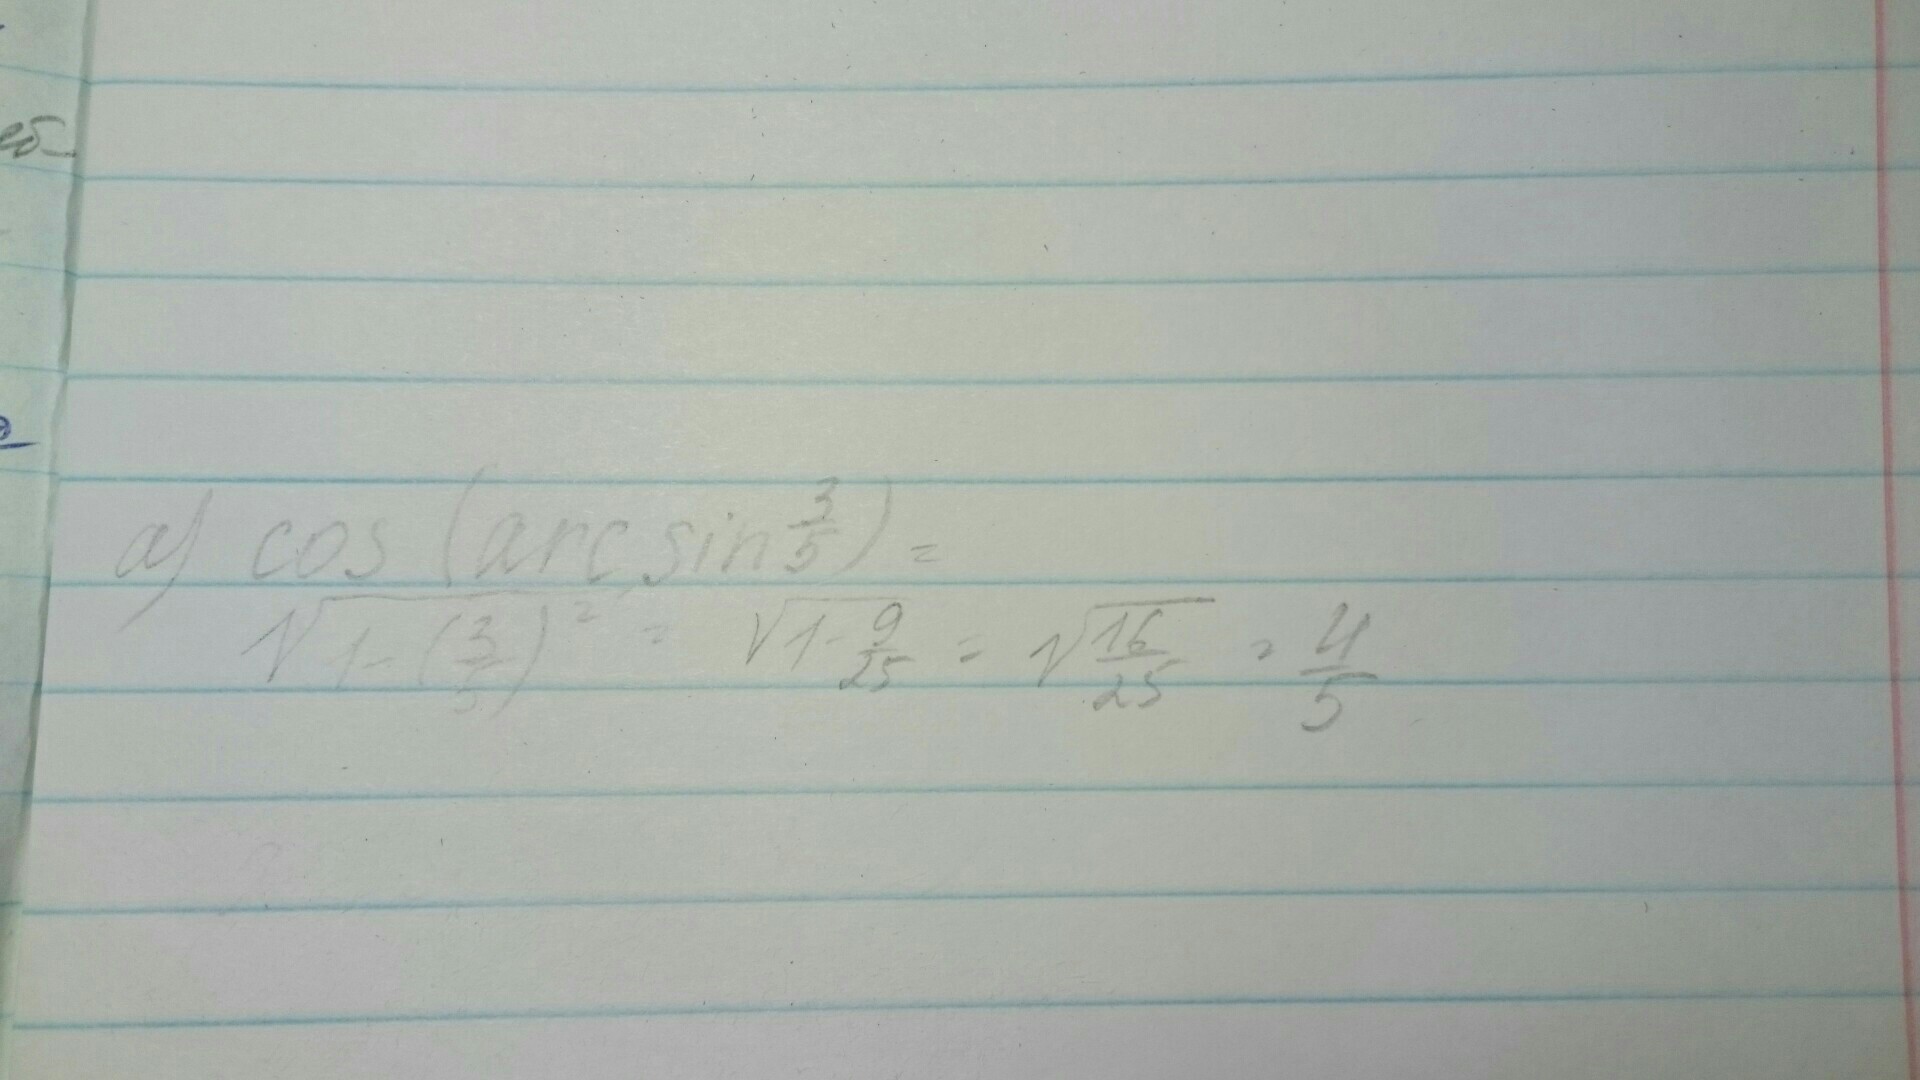 еб-
а) cos (arcsin 3/5) =
√(1-(3/5)²) = √(1-9/25) = √(16/25) = 4/5